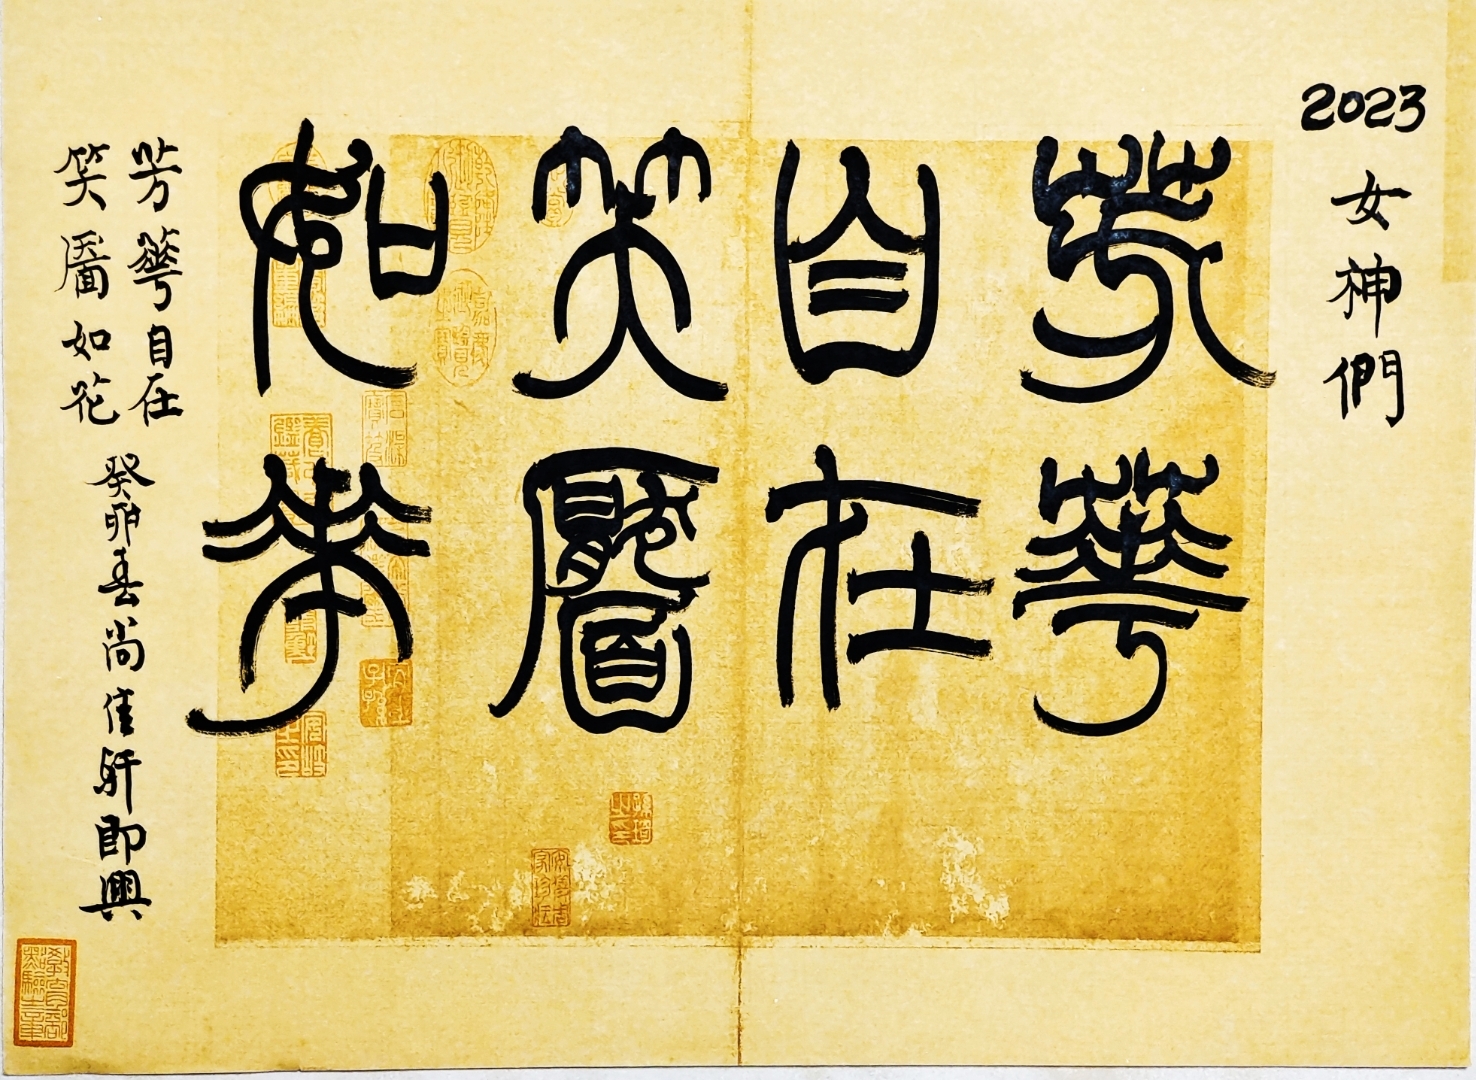 2023
女神們
芳華
自在
笑靨
如花
芳華自在
笑靨如花
癸卯春尚佳軒即興